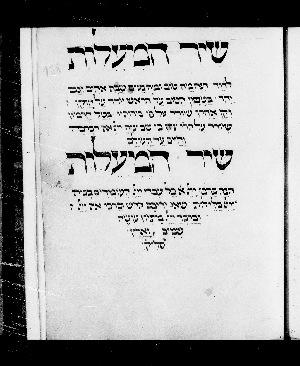 שיר המעלות
לדוד הנה מה טוב ומה נעים שבת אחים גם יחד
כשמן הטוב על הראש יורד על הזקן
זקן אהרן שירד על פי מדותיו כטל חרמון
שיורד על הררי ציון כי שם צוה יי את הברכה
חיים עד העולם
שיר המעלות
הנה ברכו את יי כל עבדי יי העומדים בבית
יי בלילות שאו ידיכם קדש וברכו את יי
יברכך יי מציון עושה
שמים וארץ